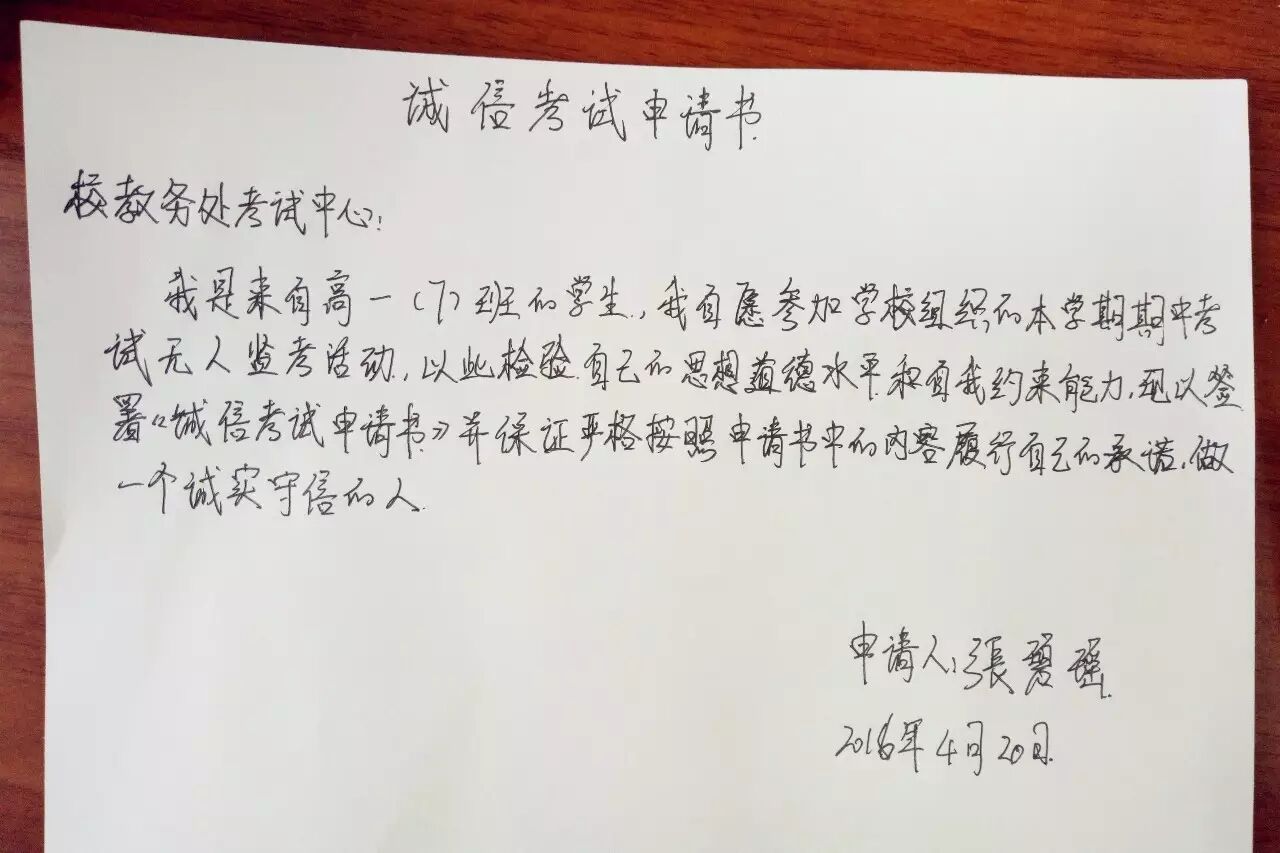 诚信考试申请书
校教务处考试中心:
我是来自高一(7)班的学生,我自愿参加学校组织的本学期期中考
试无人监考活动,以此检验自己的思想道德水平和自我约束能力,现以签
署《诚信考试申请书》并保证严格按照申请书中的内容履行自己的承诺,做
一个诚实守信的人.
申请人:張碧瑶
2016年4月20日